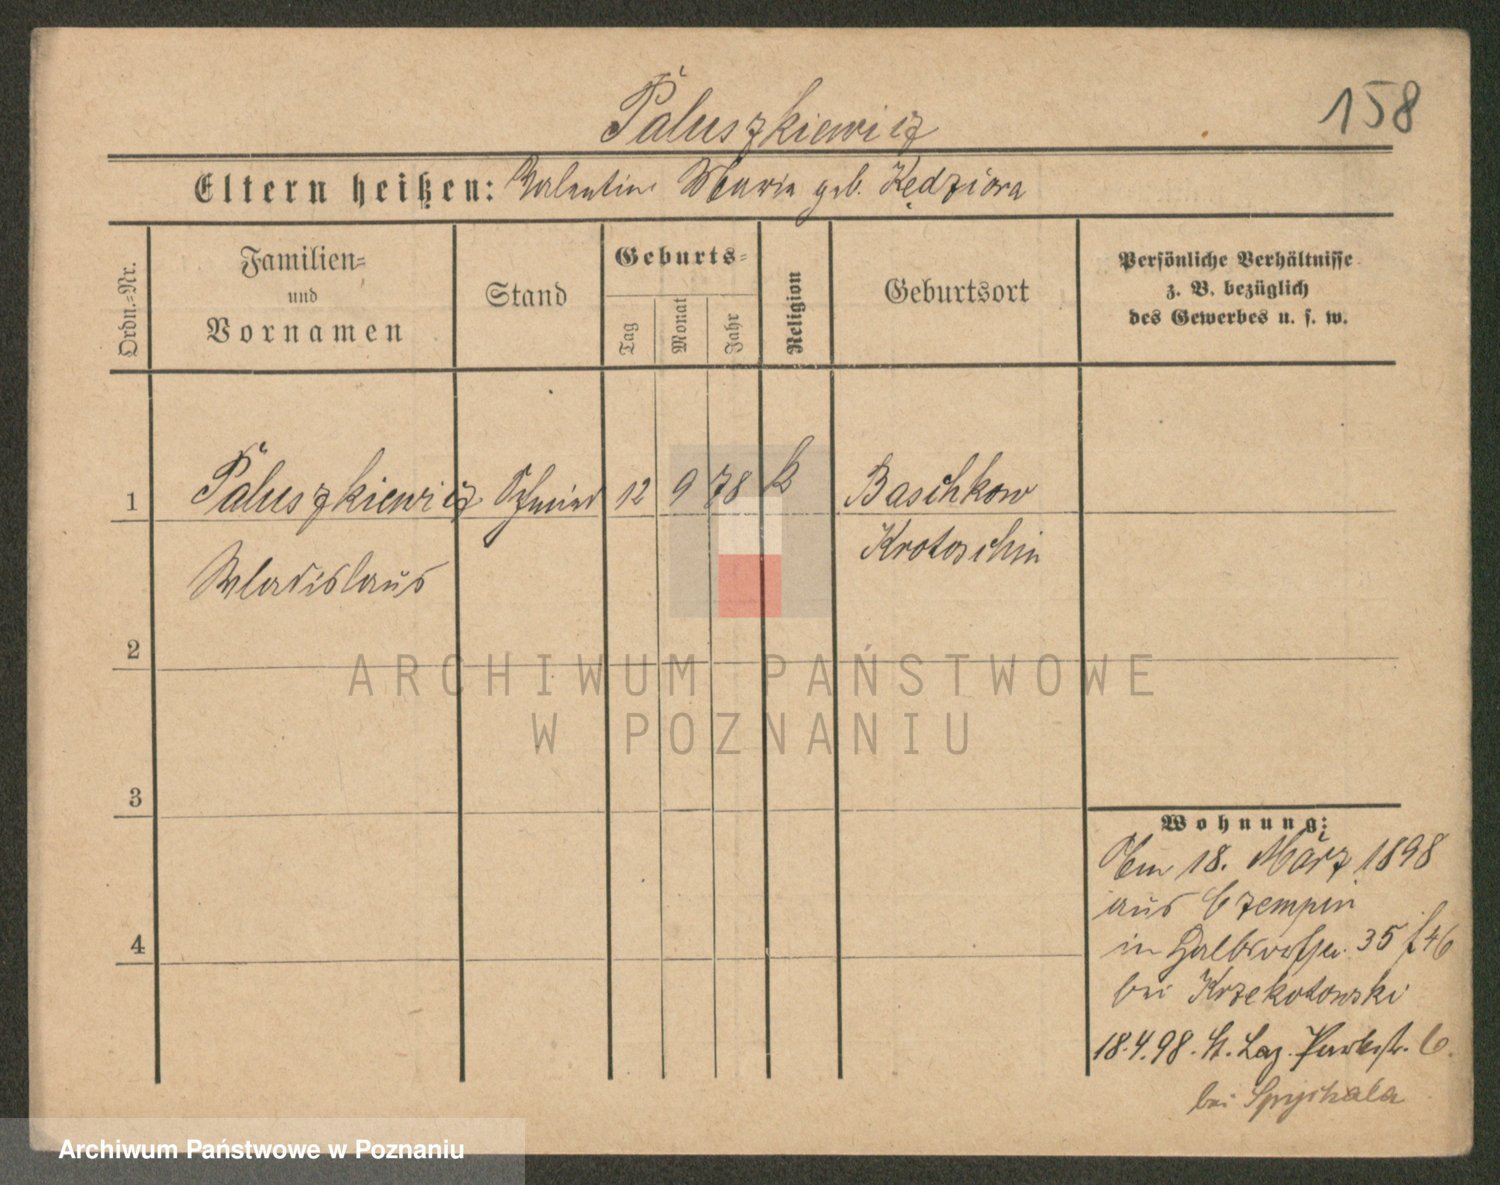 158
Paluszkiewicz
Eltern heißen: Valentin Maria geb. Kędziora
Ordn.-Nr.
Familien-
und
Vornamen
Stand
Geburts-
Tag
Monat
Jahr
Religion
Geburtsort
Persönliche Verhältnisse
z. B. bezüglich
des Gewerbes u. s. w.
1 Paluszkiewicz Schmied 12 9 78 k Baschkow
Krotoschin
Wladislaus
2
ARCHIWUM PAŃSTWOWE
W POZNANIU
3
4
Wohnung:
18. März 1898
aus Czempin
in 35
bei Krzekotowski
18.4.98. St. Laz. Parkstr. 6.
bei Spychala
Archiwum Państwowe w Poznaniu